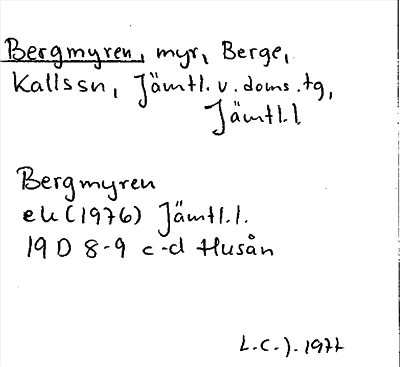 Bergmyren, myr, Berge,
Kallssn, Jämtl. v. doms. tg,
Jämtl. l
Bergmyren
ek (1976) Jämtl. l.
19 D 8-9 c-d Husån
L.C.J. 1977